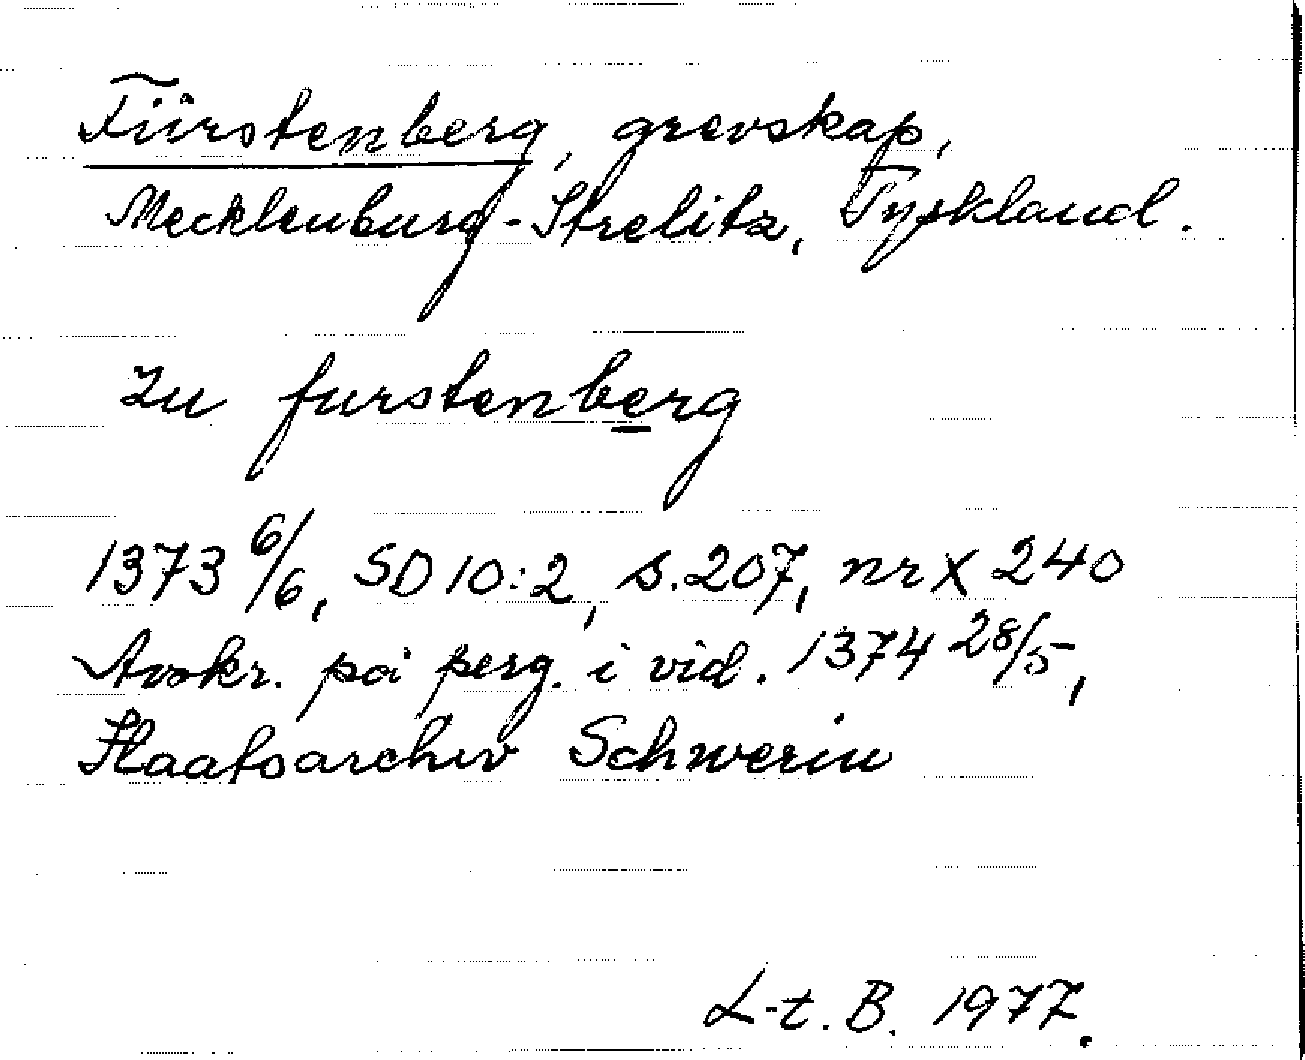 Fürstenberg, grevskap,
Mecklenburg-Strelitz, Tyskland.
zu furstenberg
1373 6/6, SD 10:2, s. 207, nr X 240
Avskr. på perg. i vid. 1374 28/5,
Staatsarchiv Schwerin
L-t. B. 1977.